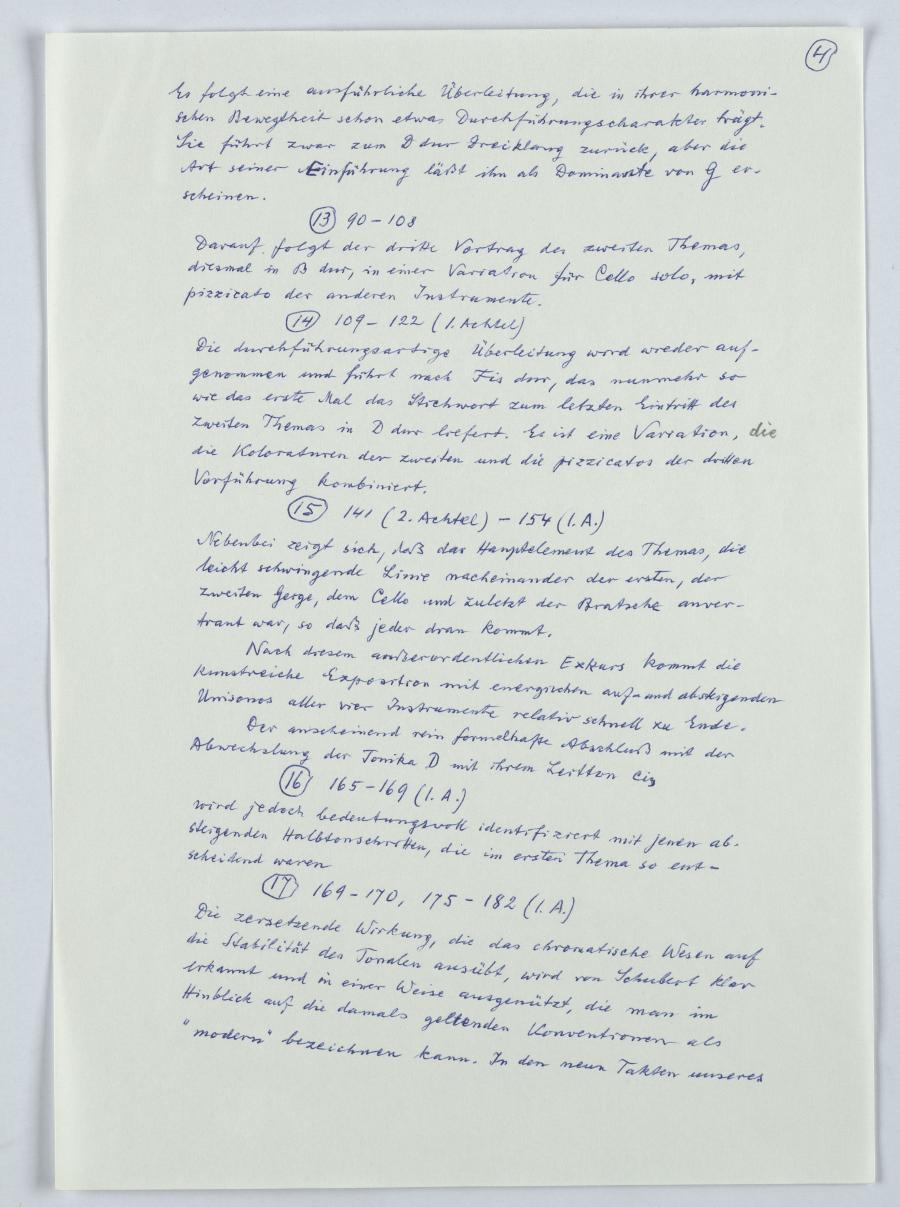 4
Es folgt eine ausführliche Überleitung, die in ihrer harmoni-
schen Bewegtheit schon etwas Durchführungscharakter trägt.
Sie führt zwar zum D dur Dreiklang zurück, aber die
Art seiner Einführung läßt ihn als Dominante von G er-
scheinen.
13 90-108
Darauf folgt der dritte Vortrag des zweiten Themas,
diesmal in B dur, in einer Variation für Cello solo, mit
pizzicato der anderen Instrumente.
14 109-122 (1. Achtel)
Die durchführungsartige Überleitung wird wieder auf-
genommen und führt nach Fis dur, das nunmehr so
wie das erste Mal das Stichwort zum letzten Eintritt des
zweiten Themas in D dur liefert. Es ist eine Variation, die
die Koloraturen der zweiten und die pizzicatos der dritten
Vorführung kombiniert.
15 141 (2. Achtel) - 154 (1. A.)
Nebenbei zeigt sich, daß das Hauptelement des Themas, die
leicht schwingende Linie nacheinander der ersten, der
zweiten Geige, dem Cello und zuletzt der Bratsche anver-
traut war, so daß jeder dran kommt.
Nach diesem außerordentlichen Exkurs kommt die
kunstreiche Exposition mit energischen auf- und absteigenden
Unisonos aller vier Instrumente relativ schnell zu Ende.
Der anscheinend rein formelhafte Abschluß mit der
Abwechslung der Tonika D mit ihrem Leitton cis
16 165-169 (1. A.)
wird jedoch bedeutungsvoll identifiziert mit jenen ab-
steigenden Halbtonschritten, die im ersten Thema so ent-
scheidend waren
17 169-170, 175-182 (1. A.)
Die zersetzende Wirkung, die das chromatische Wesen auf
die Stabilität des Tonalen ausübt, wird von Schubert klar
erkannt und in einer Weise ausgenützt, die man im
Hinblick auf die damals geltenden Konventionen als
"modern" bezeichnen kann. In den neun Takten unseres